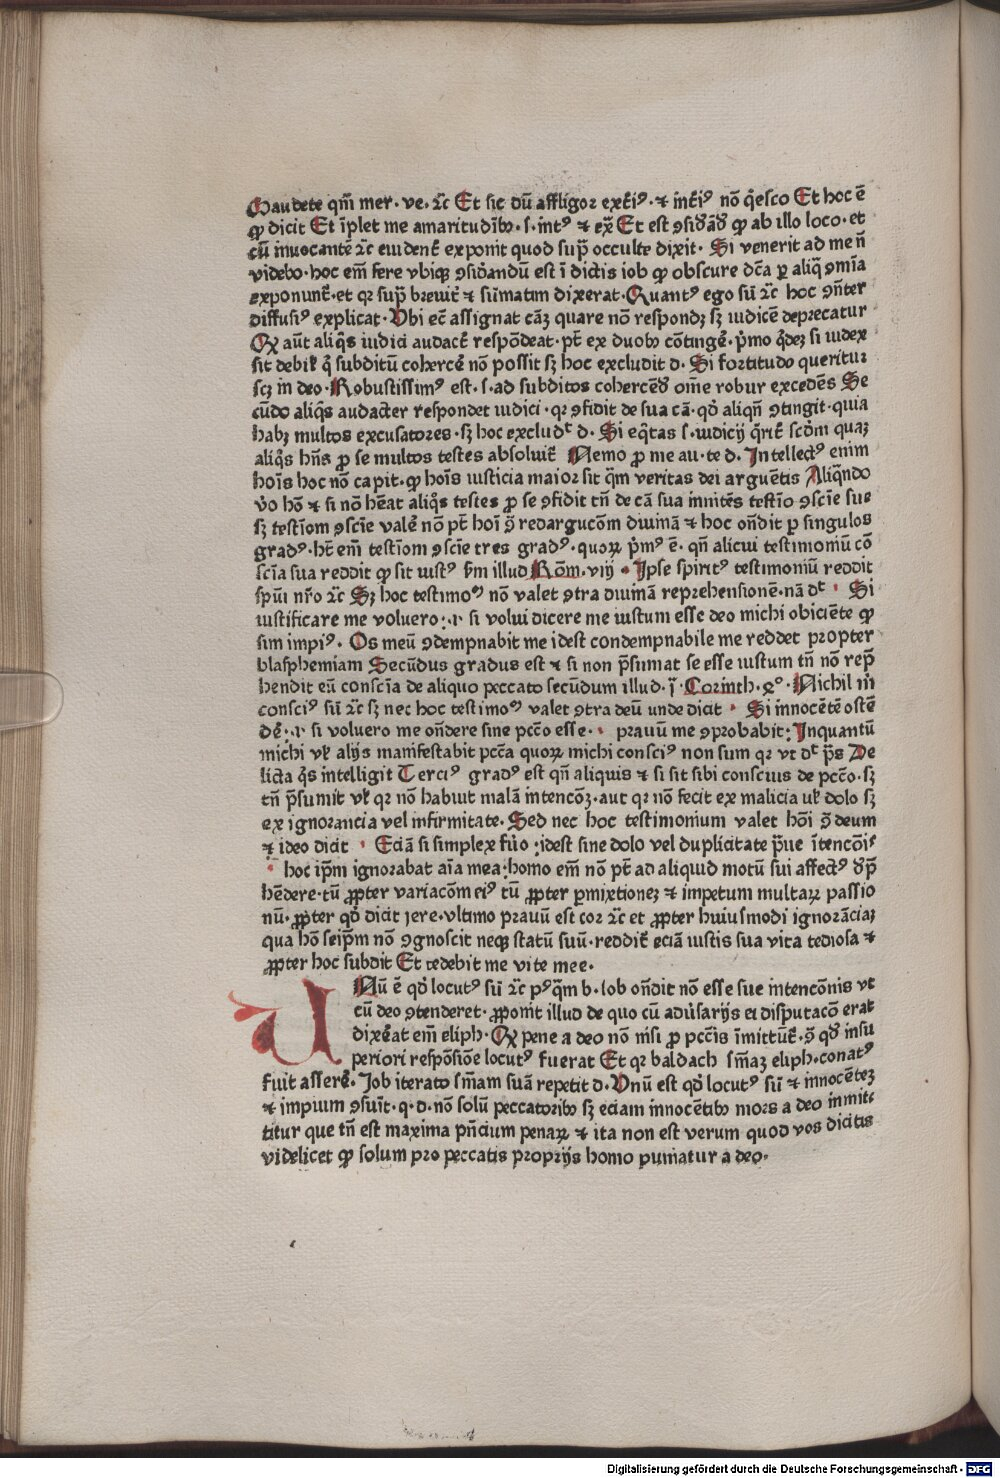 Gaudete qm̄ mer· ve· ⁊c̄ Et sic dū affligor ext̄iꝰ· ⁊ int̄iꝰ nō q̄esco Et hoc ē
ꝙ dicit Et īplet me amaritudībꝫ· s· intꝰ ⁊ ex̄ Et est ꝯsid̄ād̄ ꝙ ab illo loco· et
cū inuocantē ⁊c̄ euident̄ exponit quod sup̄ occulte dixit· Si venerit ad me n̄
videbo· hoc em̄ fere vbiqꝫ ꝯsid̄andū est ī dictis iob ꝙ obscure dc̄a p̲ aliq̄ ꝯn̄ia
exponunt̄· et qꝛ sup̄ breuit̄ ⁊ sūmatim dixerat· Quantꝰ ego sū ⁊c̄ hoc ꝯn̄ter
diffusiꝰ explicat· Vbi ec̄ assignat cāꝫ quare nō respondꝫ sꝫ iudicē deprecatur
Qꝫ aūt aliq̄s iudici audact̄ respōdeat· pt̄ ex duobꝫ cōtingē̄· p̄mo q̄deꝫ si iudex
sit debil̄ q̄ subditū cohercē̄ nō possit sꝫ hoc excludit d· Si fortitudo queritur
scꝫ in deo· Robustissimꝰ est· s· ad subditos cohercēd̄ om̄e robur excedēs Se
cūdo aliq̄s audacter respondet iudici· qꝛ ꝯfidit de sua cā· qd̄ aliqn̄ ꝯtingit· quia
habꝫ multos excusatores· sꝫ hoc excludᵗ d· Si eq̄tas s· iudicij q̄rit̄ scd̄m quaꝫ
aliq̄s hn̄s ꝓ se multos testes absoluit̄ Nemo ꝓ me au· te d· Intellectꝰ enim
hoīs hoc nō capit· ꝙ hoīs iusticia maior sit q̄m veritas dei arguētis Aliq̄ndo
v̄o hō ⁊ si nō hēat aliq̄s testes ꝓ se ꝯfidit tn̄ de cā sua innitēs testīo ꝯscīe sue
sꝫ testīom ꝯscīe valē̄ nō pt̄ hoī ꝯ̄ redargucōm diuinā ⁊ hoc on̄dit p̲ singulos
gradꝰ· ht̄ em̄ testīom ꝯscīe tres gradꝰ· quoꝝ p̄mꝰ ē· qn̄ alicui testimoniū cō
scīa sua reddit ꝙ sit iustꝰ s̄m illud Rōm· viij · Ipse spiritꝰ testimoniū reddit
spūi nr̄o ⁊c̄ Sꝫ hoc testimoᵐ nō valet ꝯtra diuinā reprehensionē· nā dᵗ · Si
iustificare me voluero: ·ı· si volui dicere me iustum esse deo michi obiciēte ꝙ
sim impiꝰ· Os meū ꝯdempnabit me idest condempnabile me reddet propter
blasphemiam Secūdus gradus est ⁊ si non p̄sumat se esse iustum tn̄ nō rep̄
hendit eū conscīa de aliquo peccato secūdum illud· j̄· Corinth· 4°· Nichil m̄
consciꝰ sū ⁊c̄ sꝫ nec hoc testimoᵐ valet ꝯtra deū unde dicit · Si innocētē ostē
dē̄: ·ı· si voluero me on̄dere sine pcc̄o esse· · prauū me ꝯprobabit: Inquantū
michi vl̄ alijs manifestabit pcc̄a quoꝝ michi consciꝰ non sum qꝛ vt dᵗ p̄s De
licta q̄s intelligit Terciꝰ gradꝰ est qn̄ aliquis ⁊ si sit sibi conscius de pcc̄o· sꝫ
tn̄ p̄sumit vl̄ qꝛ nō habuit malā intencōꝫ· aut qꝛ nō fecit ex malicia vl̄ dolo sꝫ
ex ignorancia vel infirmitate· Sed nec hoc testimonium valet hōi ꝯ̄ deum
⁊ ideo dicit · Eciā si simplex fūo :idest sine dolo vel duplicitate p̄ue ītencōiˢ
· hoc ip̄m ignorabat aīa mea: homo em̄ nō pt̄ ad aliquid motū sui affectꝰ dꝑ
hēdere· tū ꝓpter variacōm eiꝰ tū ꝓpter ꝑmixtioneꝫ ⁊ impetum multaꝝ passio
nū· ꝓpter qd̄ dicit jere· vltimo prauū est cor ⁊c̄ et ꝓpter huiusmodi ignorāciaꝫ
qua hō seip̄m nō ꝯgnoscit neqꝫ statū suū· reddit̄ eciā iustis sua vita tediosa ⁊
ꝓpter hoc subdit Et tedebit me vite mee·
UNū ē qd̄ locutꝰ sū ⁊c̄ pꝰq̄m b· Iob on̄dit nō esse sue intencōnis vt
cū deo ꝯtenderet· ꝓponit illud de quo cū adūsarijs ei disputacō erat
dixēat em̄ eliph· Qꝫ pene a deo nō nisi ꝓ pcc̄is īmittūt̄· ꝯ̄ qd̄ in su
periori respōsiōe locutꝰ fuerat Et qꝛ baldach sn̄iaꝫ eliph· conatꝰ
fuit asserē̄· Job iterato sn̄iam suā repetit d· Vnū est qd̄ locutꝰ sū ⁊ innocēteꝫ
⁊ impium ꝯsuīt· q· d· nō solū peccatoribꝫ sꝫ eciam innocētibꝫ mors a deo inmit
titur que tn̄ est maxima pn̄cium penaꝝ ⁊ ita non est verum quod vos dicitis
videlicet ꝙ solum pro peccatis proprijs homo puniatur a deo·
Digitalisierung gefördert durch die Deutsche Forschungsgemeinschaft - DFG